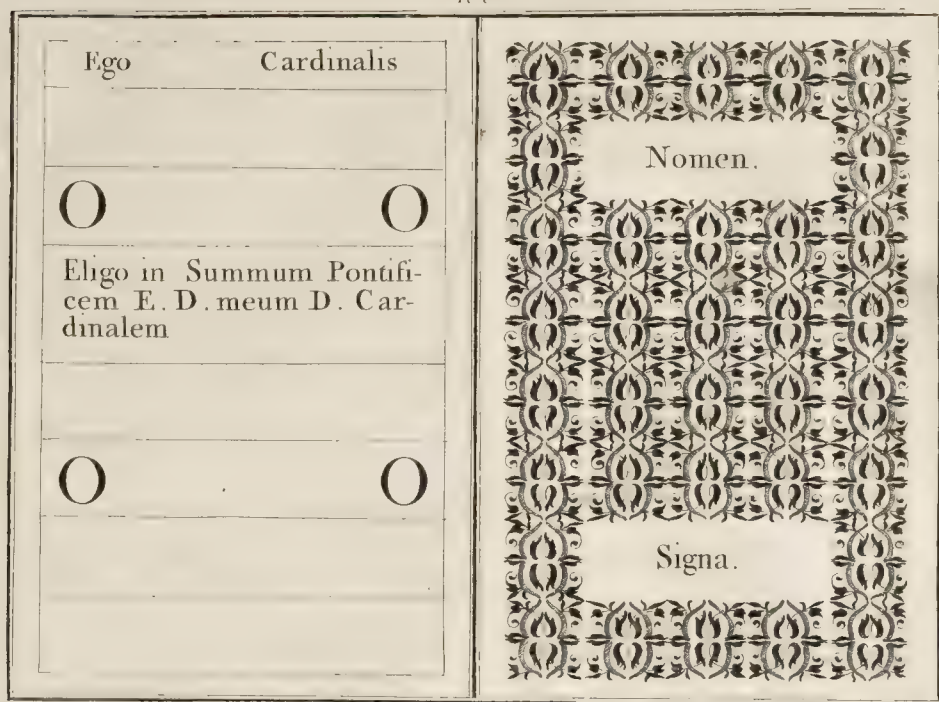 Ego Cardinalis
O O
Eligo in Summum Pontifi-
cem E. D. meum D. Car-
dinalem
O O
Nomen.
Signa.